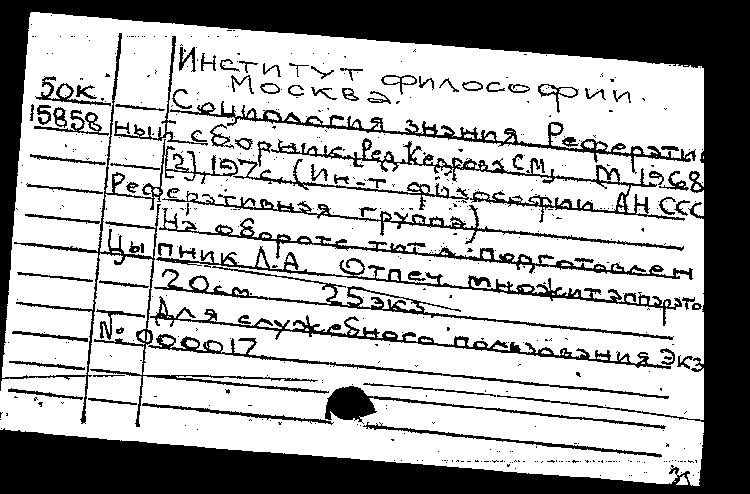 Институт философии.
Москва.
50к.
15858
Социология знания. Реферэтив
ный сборник. [Ред. Кедрова С.М.] М., 1968
[2], 197с. (Ин-т философии АН ССС
Реферативная группа)
На обороте тит. л.: подготовлен
Цыпник Л.А. Отпеч. множит аппарэто
20см 25экз.
Для служебного пользования Экз
№ 000017